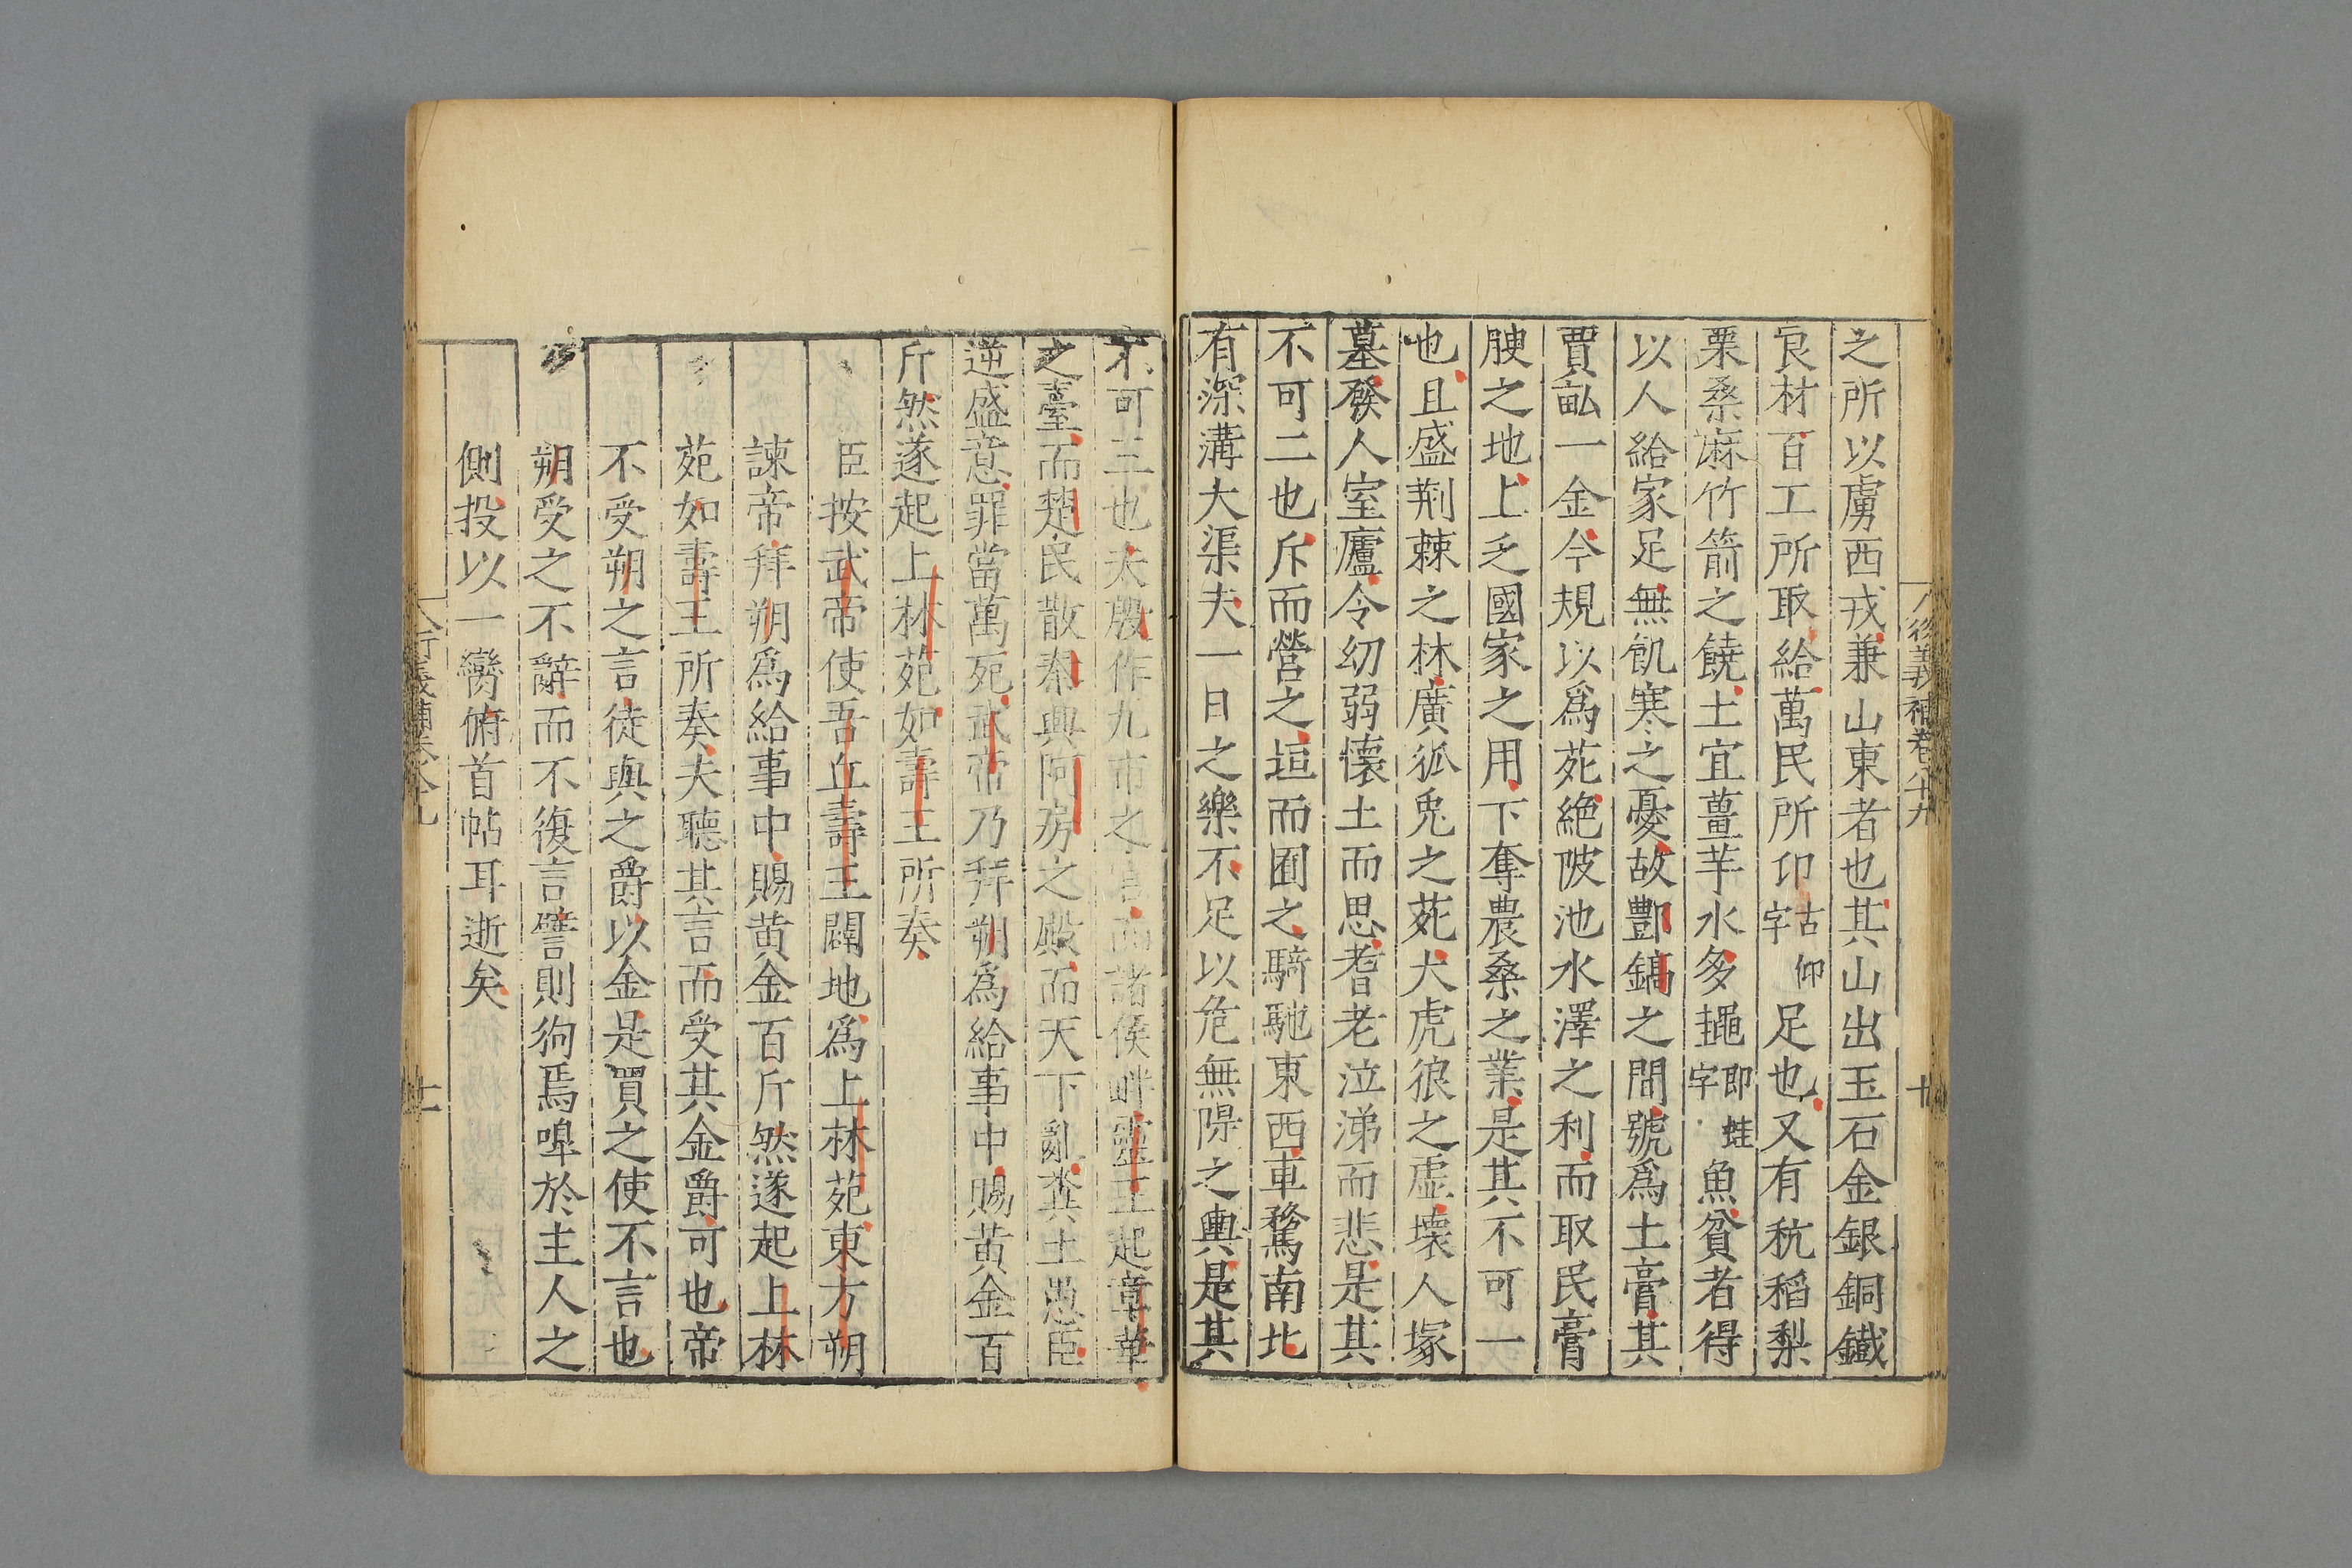 衍義補卷八十九
十
之所以虜西戎兼山東者也其山出玉石金銀銅鐵
良材百工所取給萬民所卬古仰字足也又有秔稻梨
栗桑麻竹箭之饒土宜薑芋水多䵷即蛙字魚貧者得
以人給家足無飢寒之憂故酆鎬之間號爲土膏其
賈畝一金今規以爲苑絶陂池水澤之利而取民膏
腴之地上乏國家之用下奪農桑之業是其不可一
也且盛荆棘之林廣狐兎之苑大虎狼之虛壞人塚
墓發人室廬令幼弱懷土而思耆老泣涕而悲是其
不可二也斥而營之垣而囿之騎馳東西車騖南北
有深溝大渠夫一日之樂不足以危無隄之輿是其
不可三也夫殷作九市之宮而諸侯畔靈王起章華
之臺而楚民散秦興阿房之殿而天下亂糞土愚臣
逆盛意罪當萬死武帝乃拜朔爲給事中賜黄金百
斤然遂起上林苑如壽王所奏
臣按武帝使吾丘壽王闢地爲上林苑東方朔
諫帝拜朔爲給事中賜黄金百斤然遂起上林
苑如壽王所奏夫聽其言而受其金爵可也帝
不受朔之言徒與之爵以金是買之使不言也
朔受之不辭而不復言譬則狗焉嘷於主人之
側投以一臠俯首帖耳逝矣
衍義補卷八十九
十一